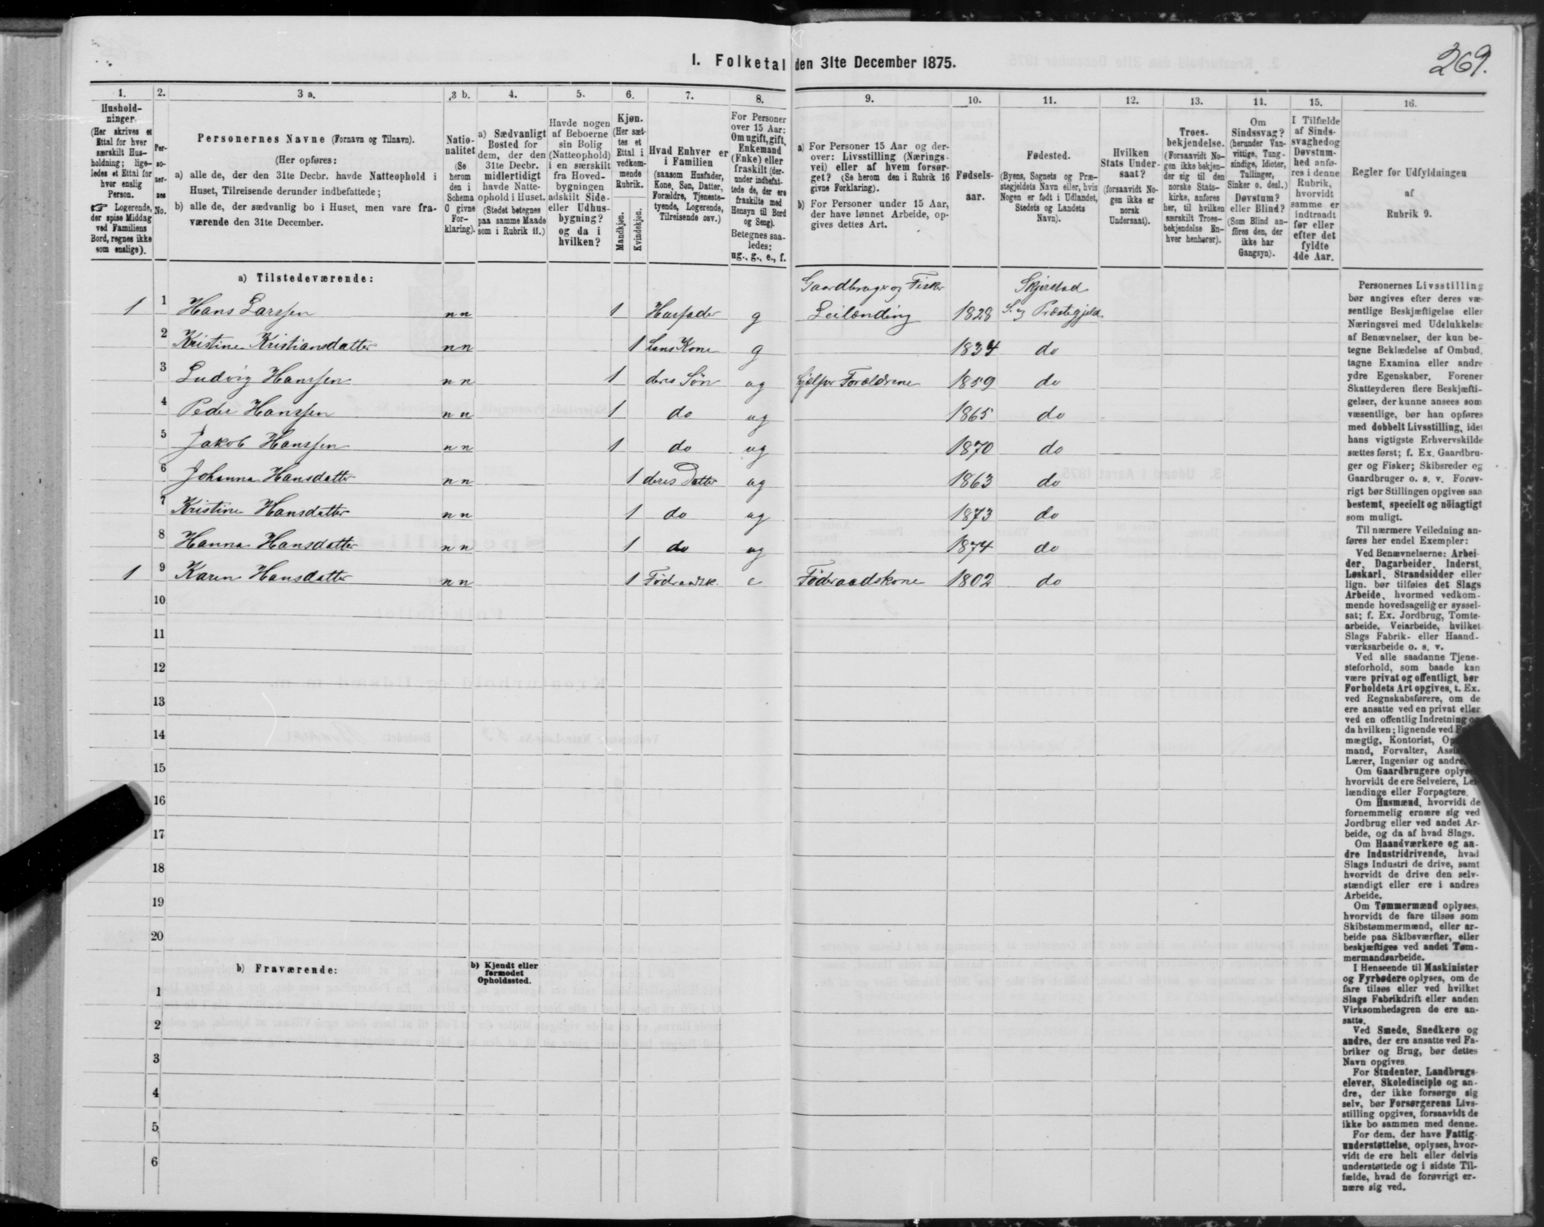 269.
I. Folketal den 31te December 1875.
1. 2. 3 a. 3 b. 4. 5. 6. 7. 8. 9. 10. 11. 12. 13. 14. 15. 16.
Hushold-
ninger.
(Her skrives et
Ettal for hver
særskilt Hus-
holdning; lige-
ledes et Ettal for
hver enslig
Person.
☞ Logerende,
der spise Middag
ved Familiens
Bord, regnes ikke
som enslige).
Per-
so-
ner-
nes
No.
Personernes Navne (Fornavn og Tilnavn).
(Her opføres:
a) alle de, der den 31te Decbr. havde Natteophold i
Huset, Tilreisende derunder indbefattede;
b) alle de, der sædvanlig bo i Huset, men vare fra-
værende den 31te December.
Natio-
nalitet
(Se
herom
den i
Schema
O givne
For-
klaring).
a) Sædvanligt
Bosted for
dem, der den
31te Decbr.
midlertidigt
havde Natte-
ophold i Huset.
(Stedet betegnes
paa samme Maade
som i Rubrik 11.)
Havde nogen
af Beboerne
sin Bolig
(Natteophold)
i en særskilt
fra Hoved-
bygningen
adskilt Side-
eller Udhus-
bygning?
og da i
hvilken?
Kjøn.
(Her sæt-
tes et
Ettal i
vedkom-
mende
Rubrik.
Mandkjøn.
Kvindekjøn.
Hvad Enhver er
i Familien
(saasom Husfader,
Kone, Søn, Datter,
Forældre, Tjeneste-
tyende, Logerende,
Tilreisende osv.)
For Personer
over 15 Aar:
Om ugift, gift,
Enkemand
(Enke) eller
fraskilt (der-
under indbefat-
tede de, der ere
fraskilte med
Hensyn til Bord
og Seng).
Betegnes saa-
ledes:
ug., g., e., f.
a) For Personer 15 Aar og der-
over: Livsstilling (Nærings-
vei) eller af hvem forsør-
get? (Se herom den i Rubrik 16
givne Forklaring).
b) For Personer under 15 Aar,
der have lønnet Arbeide, op-
gives dettes Art.
Fødsels-
aar.
Fødested.
(Byens, Sognets og Præ-
stegjeldets Navn eller, hvis
Nogen er født i Udlandet,
Stedets og Landets
Navn).
Hvilken
Stats Under-
saat?
(forsaavidt No-
gen ikke er
norsk
Undersaat).
Troes-
bekjendelse.
(Forsaavidt No-
gen ikke bekjen-
der sig til den
norske Stats-
kirke, anføres
her, til hvilken
særskilt Troes-
bekjendelse En-
hver henhører).
Om
Sindssvag?
(herunder Van-
vittige, Tung-
sindige, Idioter,
Tullinger,
Sinker o. desl.)
Døvstum?
eller Blind?
(Som Blind an-
føres den, der
ikke har
Gangsyn).
I Tilfælde
af Sinds-
svaghed og
Døvstum-
hed anfø-
res i denne
Rubrik,
hvorvidt
samme er
indtraadt
før eller
efter det
fyldte
4de Aar.
Regler for Udfyldningen
af
Rubrik 9.
a) Tilstedeværende:
Gaardbruger og Fisker Skjerstad
1 1 Hans Larssen nn 1 Husfader g Leilænding 1828 S. og Præstegjeld
2 Kristine Kristiansdatter nn 1 hans Kone g 1834 do
3 Ludvig Hanssen nn 1 deres Søn ug hjelper Forældrene 1859 do
4 Peder Hanssen nn 1 do ug 1865 do
5 Jakob Hanssen nn 1 do ug 1870 do
6 Johanna Hansdatter nn 1 deres Datter ug 1863 do
7 Kristine Hansdatter nn 1 do ug 1873 do
8 Hanna Hansdatter nn 1 do ug 1874 do
1 9 Karen Hansdatter nn 1 Føderaadsk. e Føderaadskone 1802 do
10
11
12
13
14
15
16
17
18
19
20
b) Fraværende:
b) Kjendt eller
formodet
Opholdssted.
1
2
3
4
5
6
Personernes Livsstilling
bør angives efter deres væ-
sentlige Beskjæftigelse eller
Næringsvei med Udelukkelse
af Benævnelser, der kun be-
tegne Beklædelse af Ombud,
tagne Examina eller andre
ydre Egenskaber. Forener
Skatteyderen flere Beskjæfti-
gelser, der kunne ansees som
væsentlige, bør han opføres
med dobbelt Livsstilling, idet
hans vigtigste Erhvervskilde
sættes først; f. Ex. Gaardbru-
ger og Fisker; Skibsreder og
Gaardbruger o. s. v. Forøv-
rigt bør Stillingen opgives saa
bestemt, specielt og nøiagtigt
som muligt.
Til nærmere Veiledning an-
føres her endel Exempler:
Ved Benævnelserne: Arbei-
der, Dagarbeider, Inderst,
Løskarl, Strandsidder eller
lign. bør tilføies det Slags
Arbeide, hvormed vedkom-
mende hovedsagelig er syssel-
sat; f. Ex. Jordbrug, Tomte-
arbeide, Veiarbeide, hvilket
Slags Fabrik- eller Haand-
værksarbeide o. s. v.
Ved alle saadanne Tjene-
steforhold, som baade kan
være privat og offentligt, bør
Forholdets Art opgives, t. Ex.
ved Regnskabsførere, om de
ere ansatte ved en privat eller
ved en offentlig Indretning og
da hvilken; lignende ved
mægtig, Kontorist,
mand, Forvalter,
Lærer, Ingeniør og andre.
Om Gaardbrugere oplyses,
hvorvidt de ere Selveiere, Lei-
lændinge eller Forpagtere.
Om Husmænd, hvorvidt de
fornemmelig ernære sig ved
Jordbrug eller ved andet Ar-
beide, og da af hvad Slags.
Om Haandværkere og an-
dre Industridrivende, hvad
Slags Industri de drive, samt
hvorvidt de drive den selv-
stændigt eller ere i andres
Arbeide.
Om Tømmermænd oplyses,
hvorvidt de fare tilsøs som
Skibstømmermænd, eller ar-
beide paa Skibsværfter, eller
beskjæftiges ved andet Tøm-
mermandsarbeide.
I Henseende til Maskinister
og Fyrbødere oplyses, om de
fare tilsøs eller ved hvilket
Slags Fabrikdrift eller anden
Virksomhedsgren de ere an-
satte.
Ved Smede, Snedkere og
andre, der ere ansatte ved Fa-
briker og Brug, bør dettes
Navn opgives.
For Studenter, Landbrugs-
elever, Skoledisciple og an-
dre, der ikke forsørge sig
selv, bør Forsørgerens Livs-
stilling opgives, forsaavidt de
ikke bo sammen med denne.
For dem, der have Fattig-
understøttelse, oplyses, hvor-
vidt de ere helt eller delvis
understøttede og i sidste Til-
fælde, hvad de forøvrigt er-
nære sig ved.